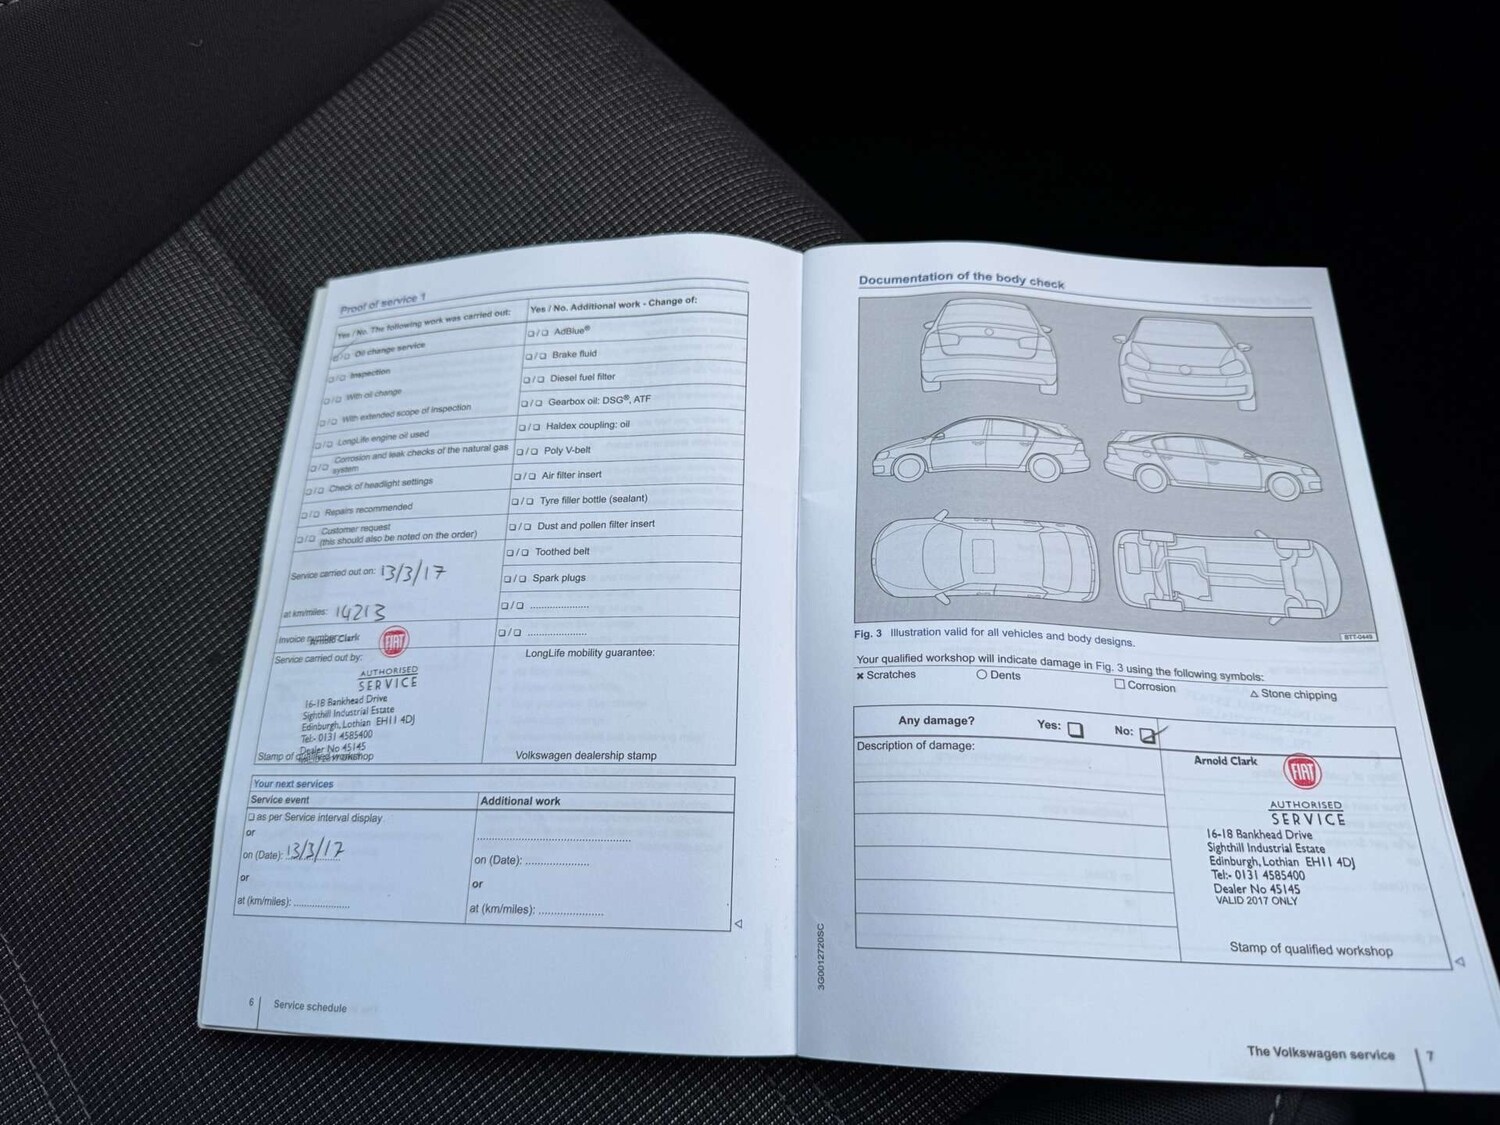 Proof of service 1
Yes / No. The following work was carried out:
Oil change service
Inspection
With oil change
With extended scope of inspection
LongLife engine oil used
Corrosion and leak checks of the natural gas
system
Check of headlight settings
Repairs recommended
Customer request
(this should also be noted on the order)
Service carried out on: 13/3/17
at km/miles: 14213
Invoice number
Arnold Clark
FIAT
Service carried out by:
AUTHORISED
SERVICE
16-18 Bankhead Drive
Sighthill Industrial Estate
Edinburgh, Lothian EH11 4DJ
Tel:- 0131 4585400
Dealer No 45145
Stamp of qualified workshop
Yes / No. Additional work - Change of:
AdBlue®
Brake fluid
Diesel fuel filter
Gearbox oil: DSG®, ATF
Haldex coupling: oil
Poly V-belt
Air filter insert
Tyre filler bottle (sealant)
Dust and pollen filter insert
Toothed belt
Spark plugs
LongLife mobility guarantee:
Volkswagen dealership stamp
Your next services
Service event
as per Service interval display
or
on (Date): 13/3/17
or
at (km/miles):
Additional work
on (Date):
or
at (km/miles):
6 Service schedule
Documentation of the body check
BTT-0449
Fig. 3 Illustration valid for all vehicles and body designs.
Your qualified workshop will indicate damage in Fig. 3 using the following symbols:
× Scratches ○ Dents □ Corrosion △ Stone chipping
Any damage? Yes: No:
Description of damage:
Arnold Clark
FIAT
AUTHORISED
SERVICE
16-18 Bankhead Drive
Sighthill Industrial Estate
Edinburgh, Lothian EH11 4DJ
Tel:- 0131 4585400
Dealer No 45145
VALID 2017 ONLY
Stamp of qualified workshop
3G0012720SC
The Volkswagen service 7